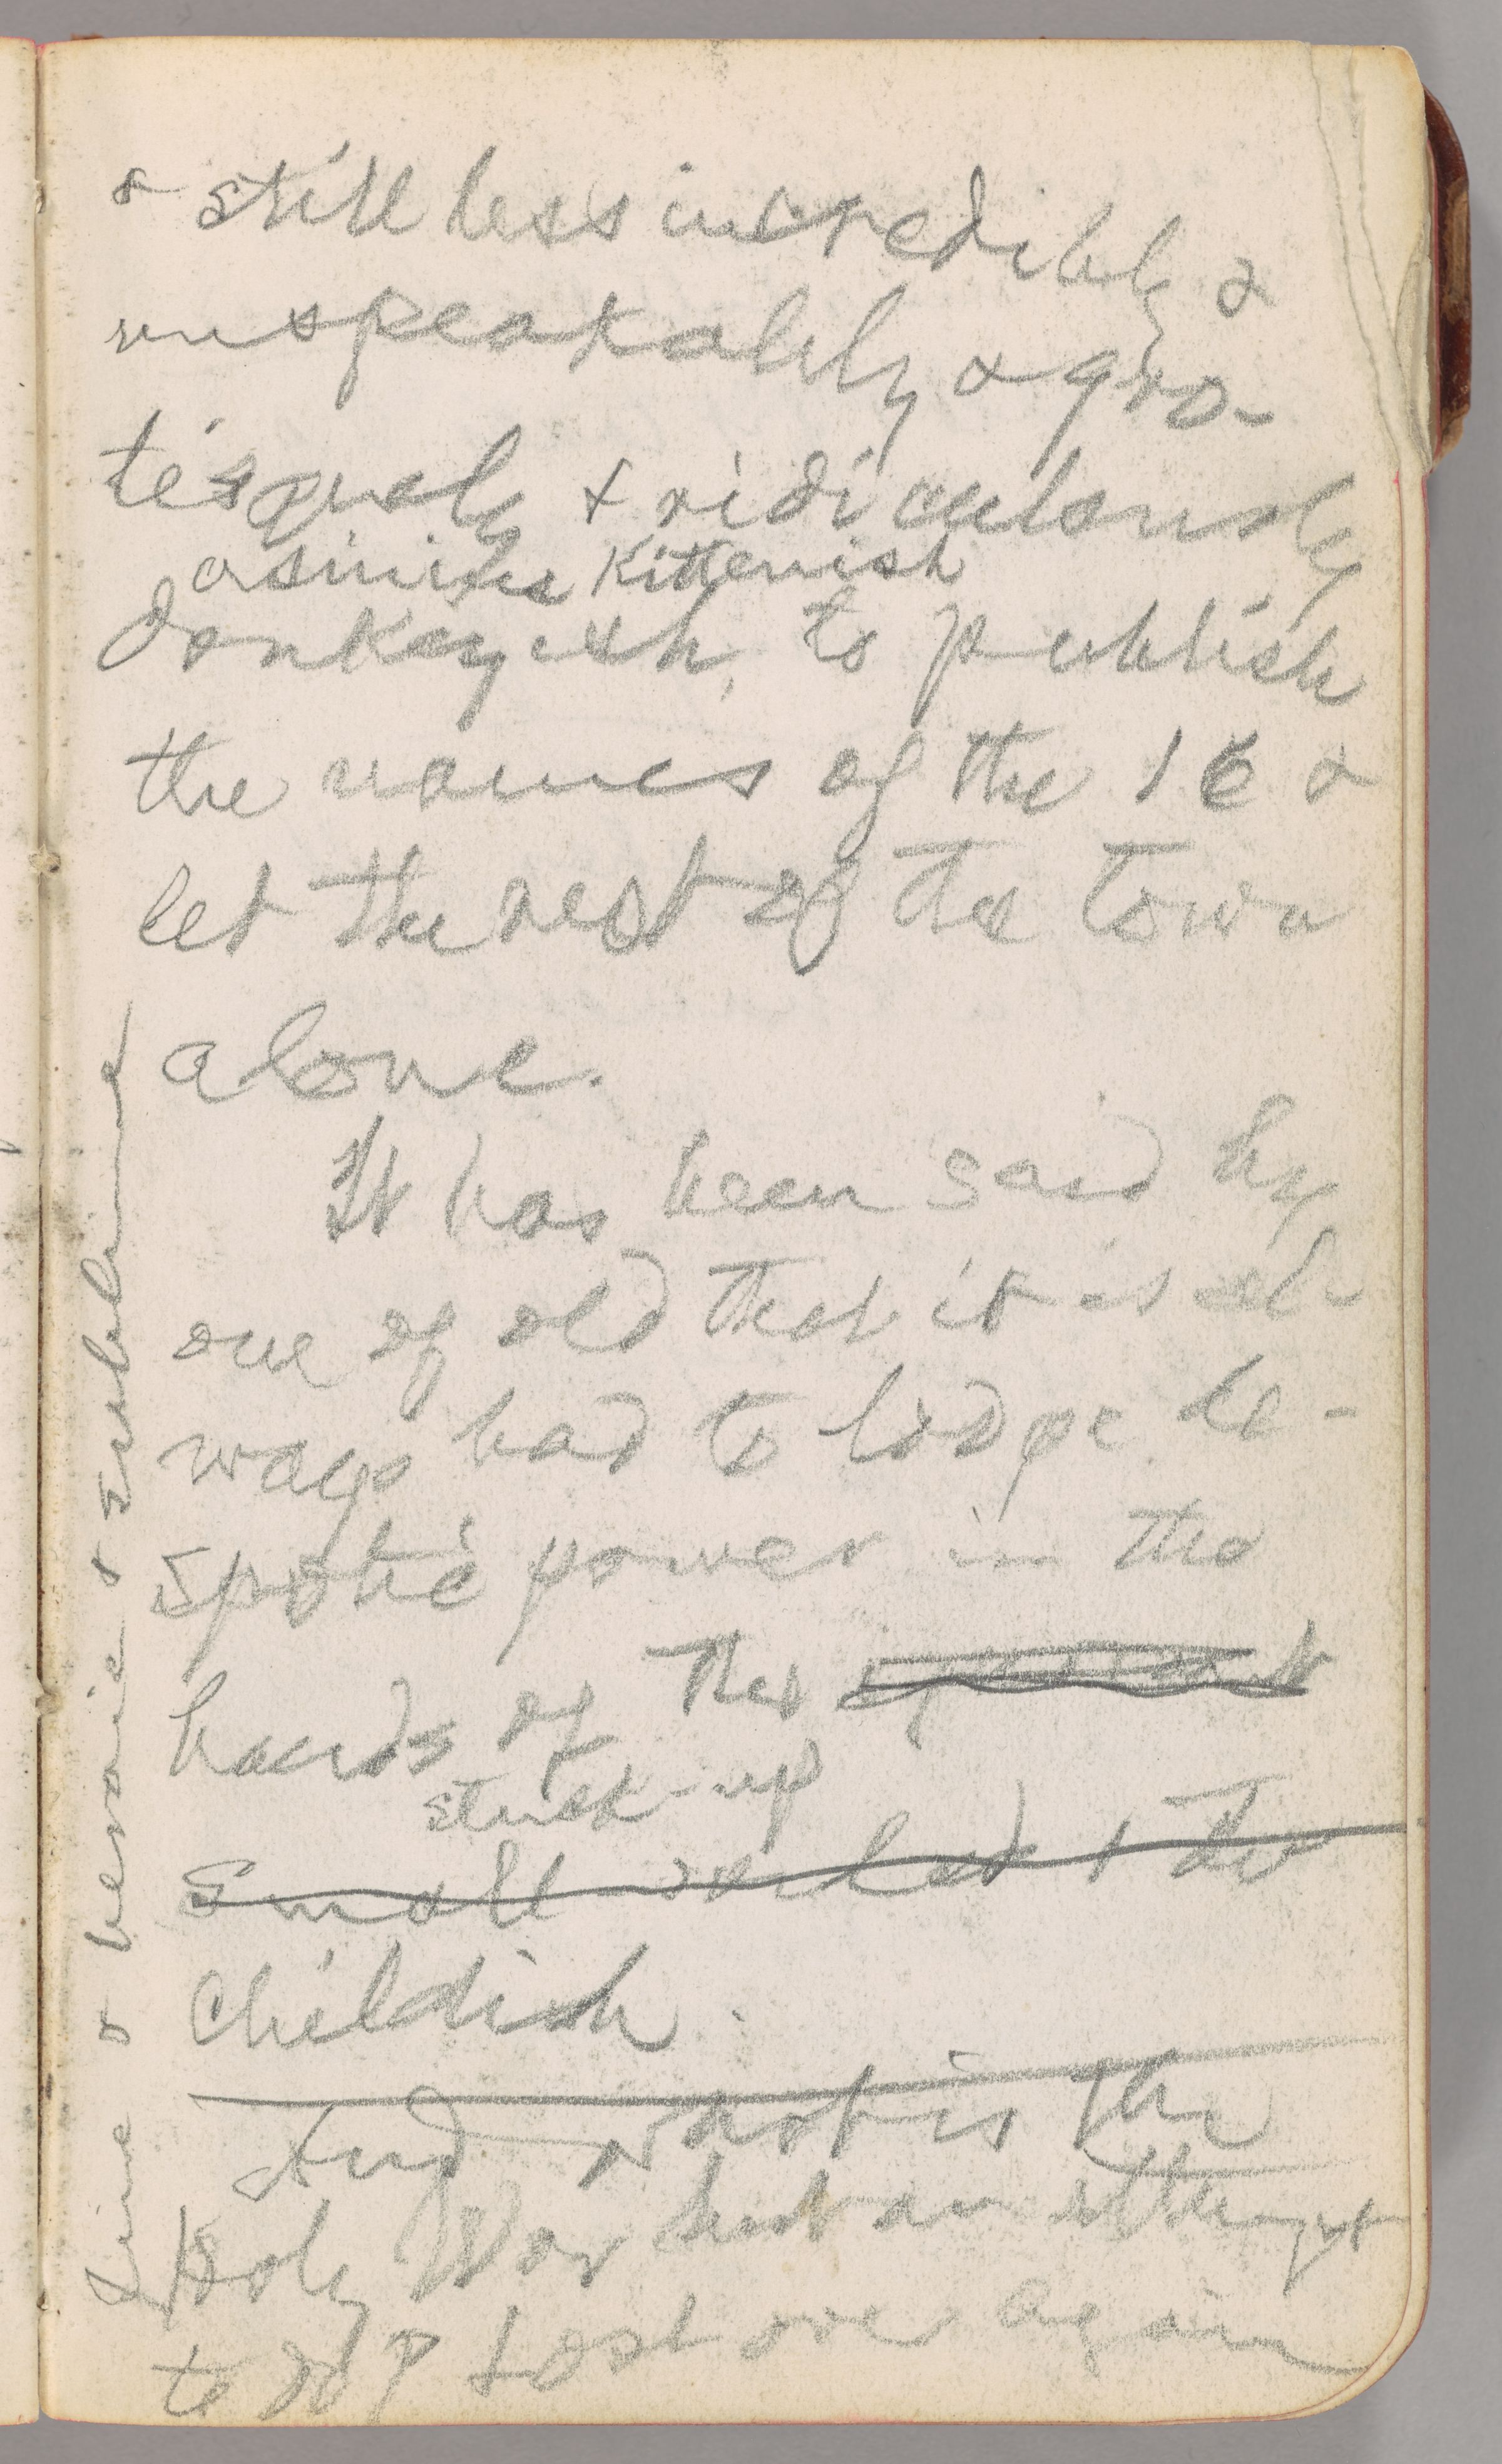 & still less incredibly &
unspeakably & gro-
tesquely & ridiculously
asinine kittenish
donkeyish, to publish
the names of the 16 &
let the rest of the town
alone.
It has been said by
one of old that it is al-
ways bad to lodge de-
spotic power in the
hands of the
stuck-up
Small & the
childish.
And what is the
Holy War but an attempt
to do P Lost over again
fine & heroic & sublime &